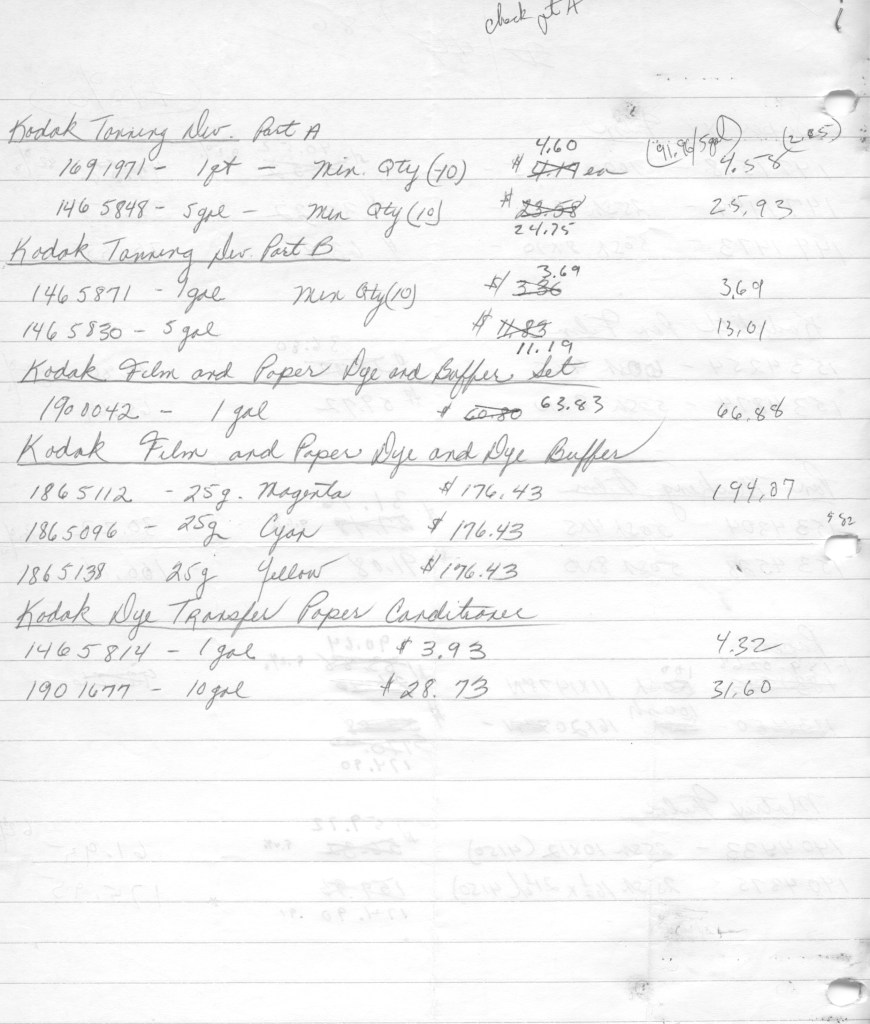 check pt A
Kodak Tanning Dev. Part A
4.60
1691971 - 1pt - Min. Qty (10) $ 4.19 ea (91.96/5gal) 4.58 (2.85)
146 5848 - 5gal - Min Qty (10) $ 23.58 25.93
24.75
Kodak Tanning Dev. Part B
3.69
146 5871 - 1gal Min Qty (10) $ 3.36 3.69
146 5830 - 5 gal $ 11.83 13.01
11.19
Kodak Film and Paper Dye and Buffer Set
190 0042 - 1 gal $ 60.80 63.83 66.88
Kodak Film and Paper Dye and Dye Buffer
1865112 - 25g. Magenta $ 176.43 194.07
1865096 - 25g Cyan $ 176.43
1865138 25g Yellow $ 176.43
Kodak Dye Transfer Paper Conditioner
146 5814 - 1 gal $ 3.93 4.32
190 1677 - 10 gal $ 28.73 31.60